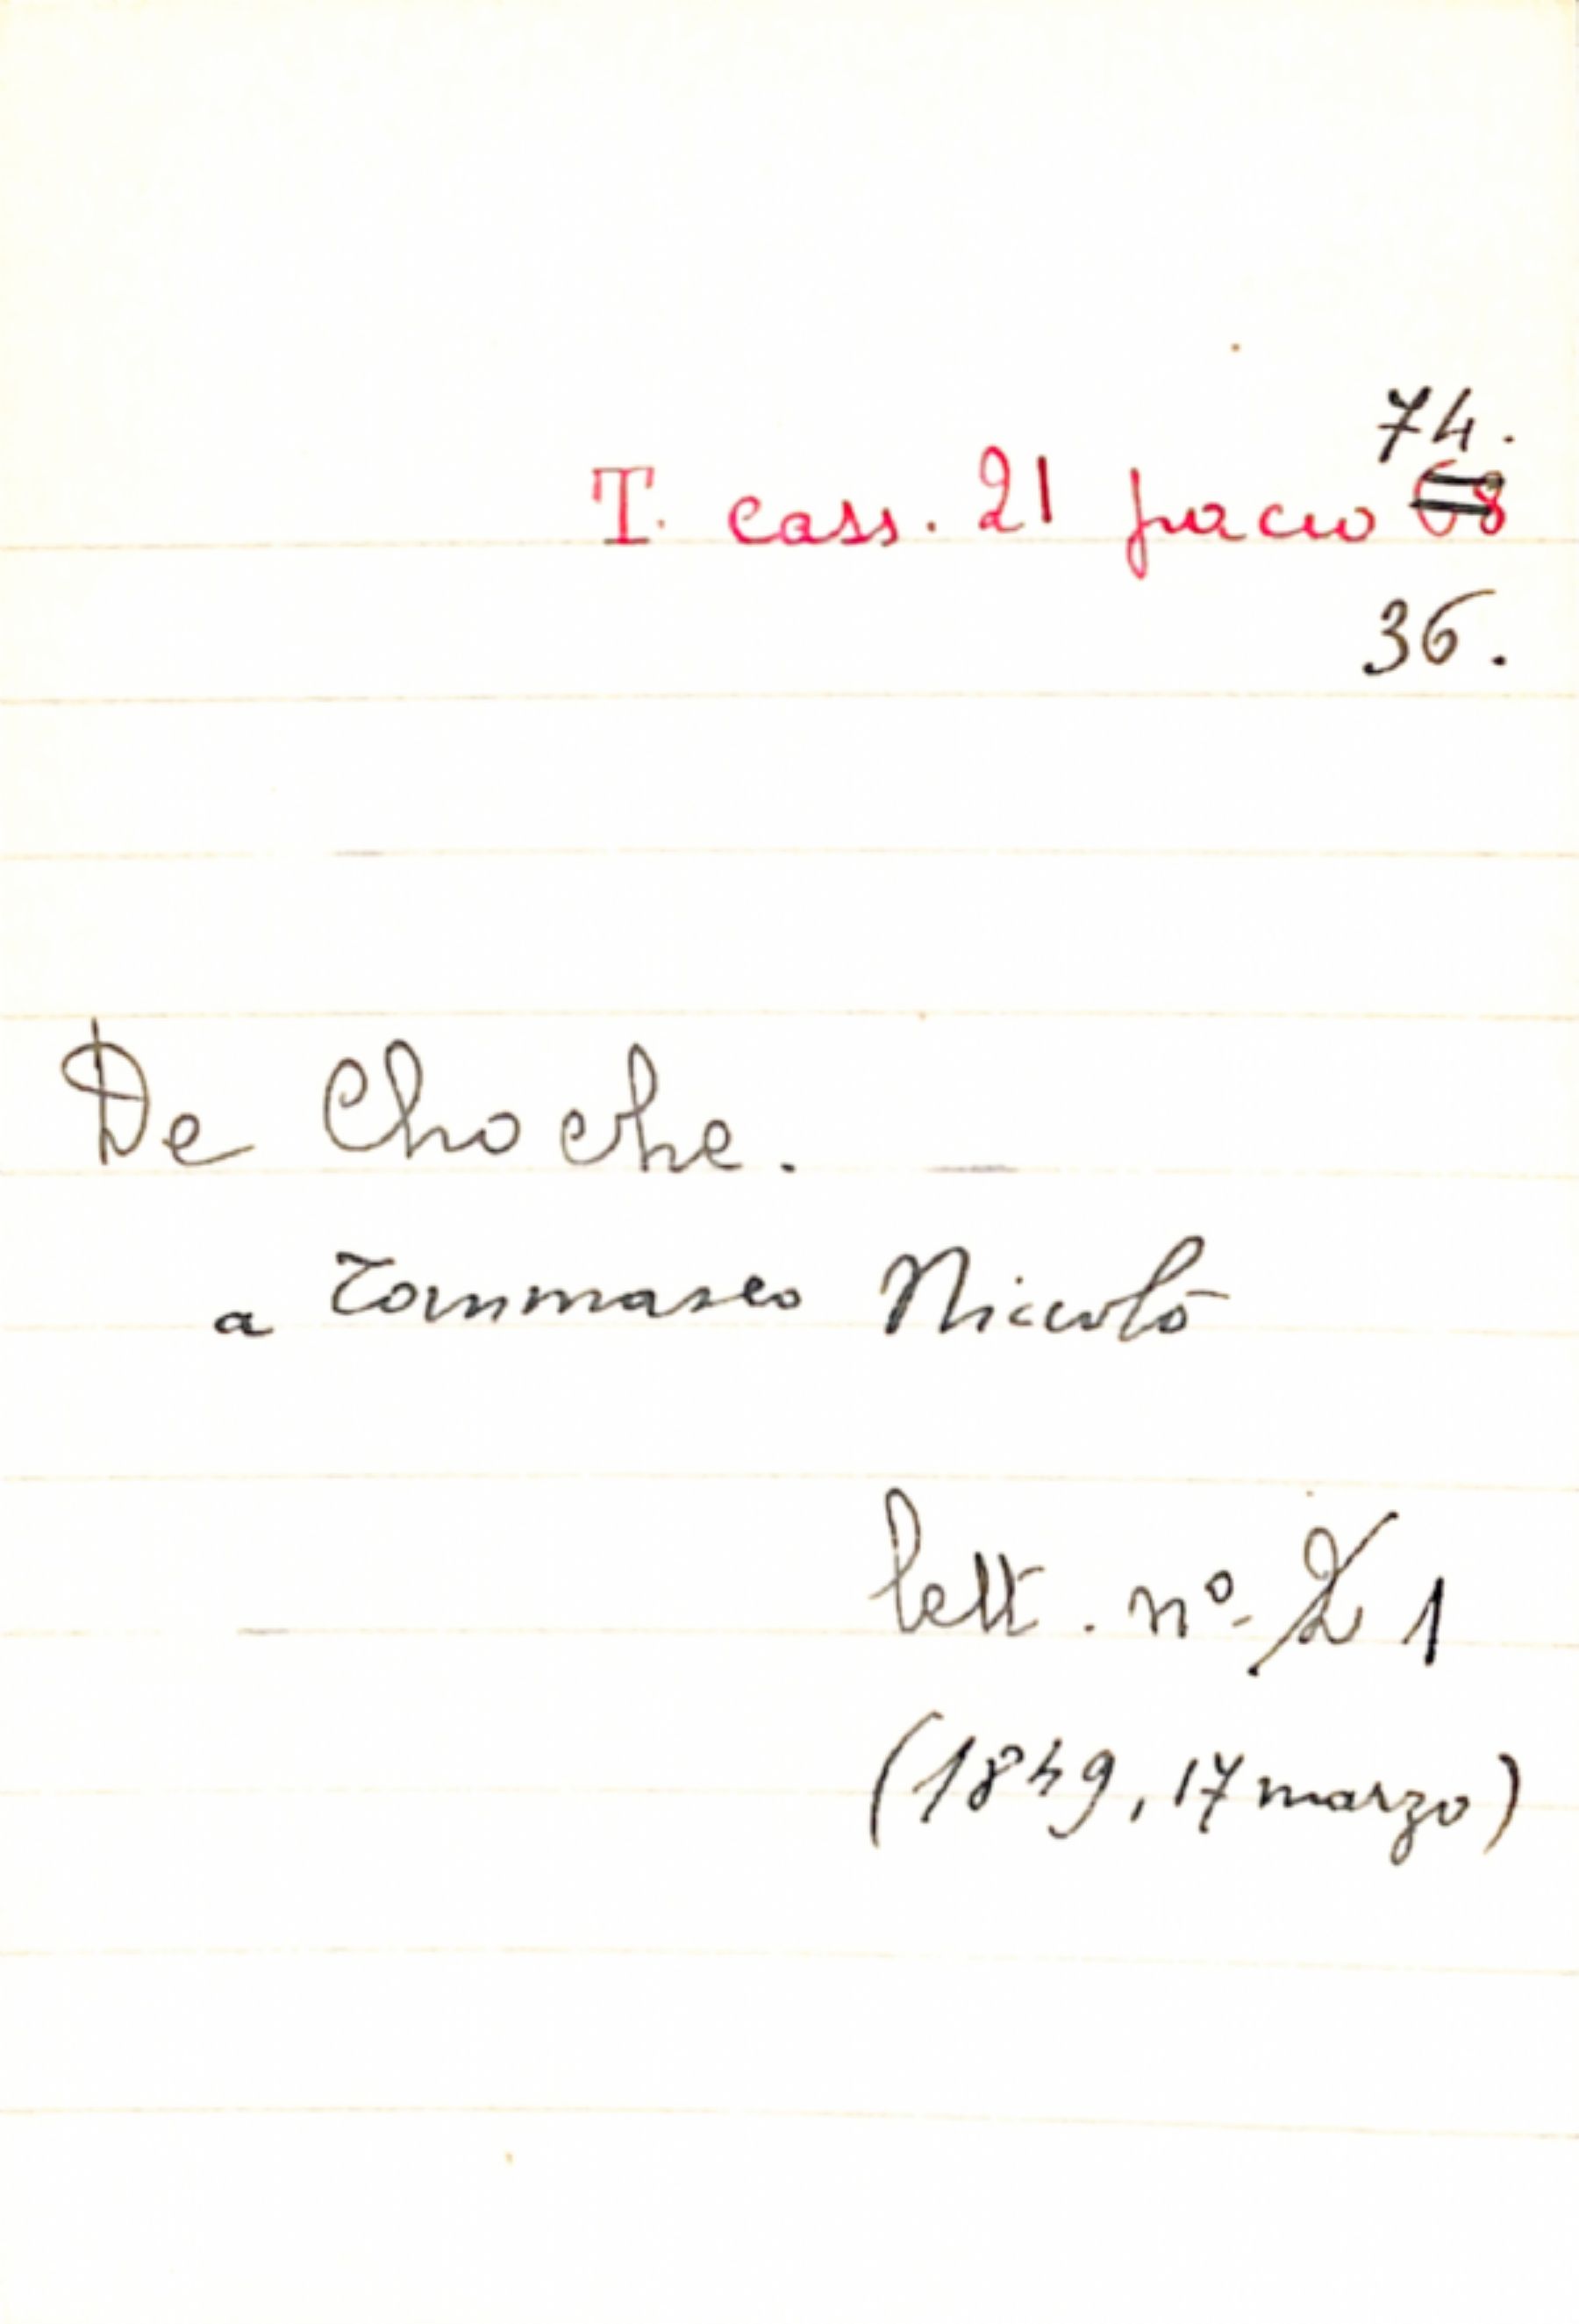 74.
T. cass. 21 pacco 68
36.
De Choche.
a Tommaseo Niccolò
lett. nº 2 1
(1849, 17 marzo)